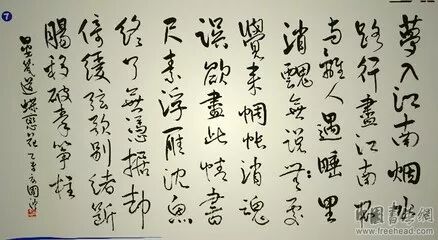 7
夢入江南烟水
路行盡江南不
与離人遇睡里
消魂無說處
覺来惆悵消魂
誤欲盡此情書
尺素浮雁沈魚
終了無憑據却
倚緩弦歌别緒斷
腸移破秦箏柱
晏几道蝶恋花
www.freehead.com